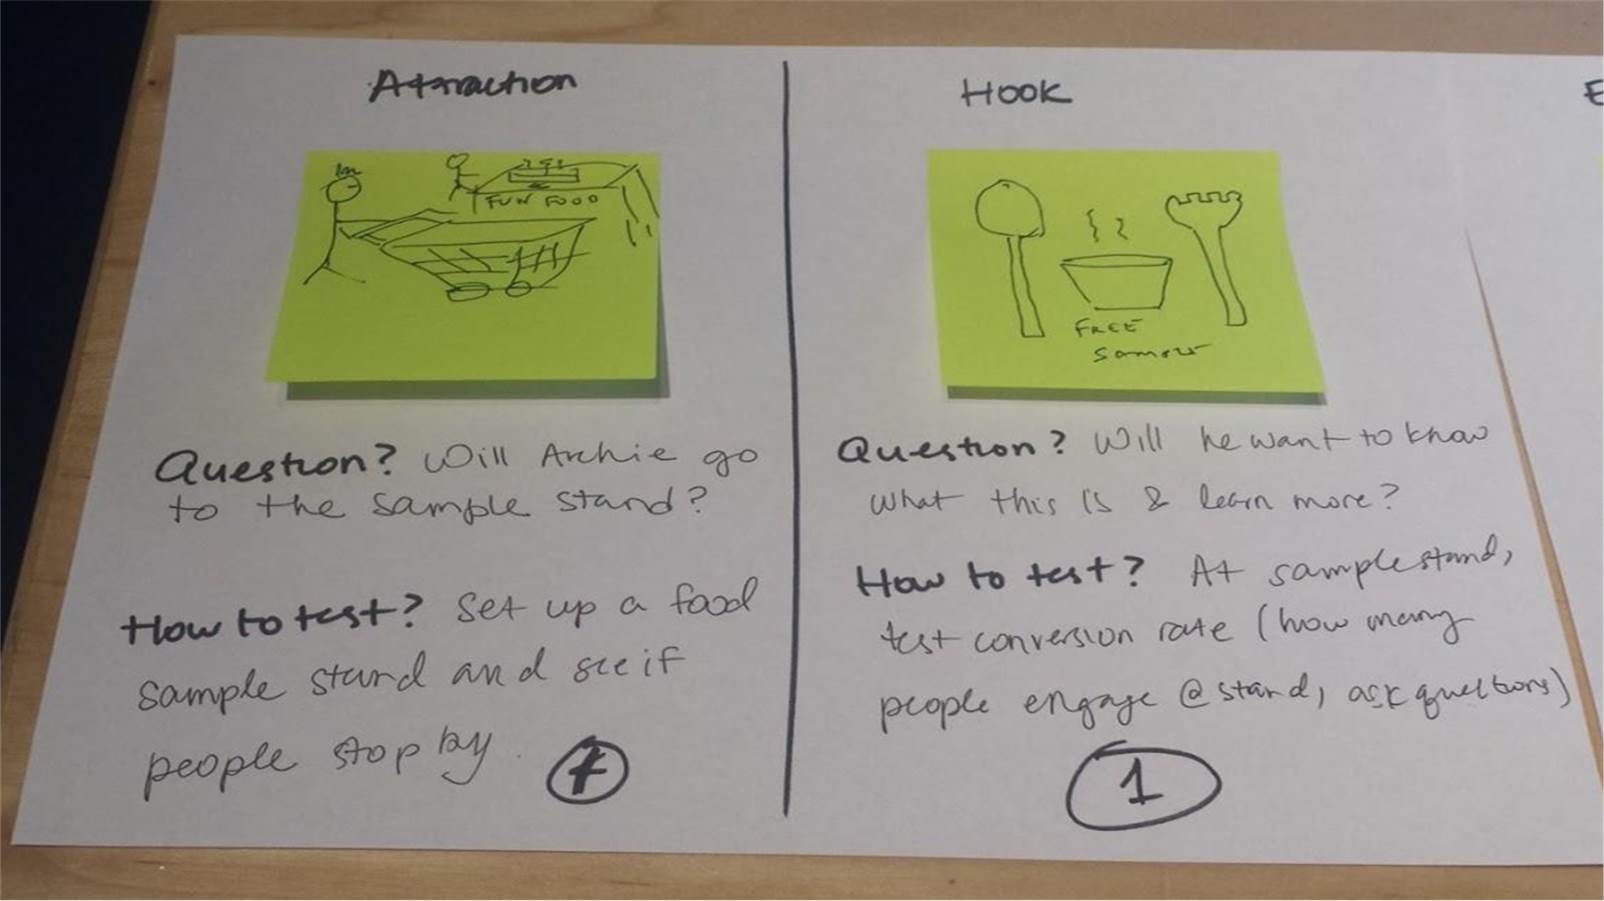 Attraction
FUN FOOD
Question? Will Archie go
to the sample stand?
How to test? Set up a food
sample stand and see if
people stop by.
Hook
FREE
Question? Will he want to know
what this is & learn more?
How to test? At sample stand,
test conversion rate (how many
people engage @ stand, ask questions)
1
E